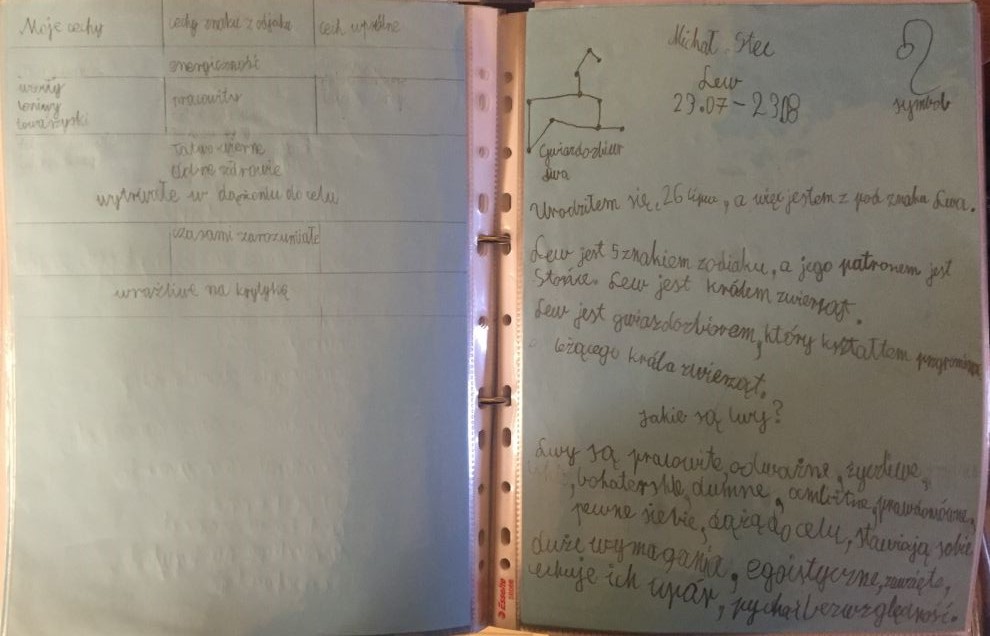 Moje cechy cechy znaku zodjaku cech wspólne
energiczność
leniwy pracowity
towarzyski
dobre zdrowie
wytrwałe w dążeniu do celu
czasami zarozumiałe
wrażliwe na krytykę
Esselte
Michał Stec
Lew
23.07 - 23.08
symbol
Gwiazdozbiór
lwa
Urodziłem się, 26 lipca, a więc jestem z pod znaku Lwa.
Lew jest 5 znakiem zodiaku, a jego patronem jest
Słońce. Lew jest królem zwierząt.
Lew jest gwiazdozbiorem, który kształtem przypomina
leżącego króla zwierząt.
Jakie są lwy?
Lwy są pracowite, odważne, życzliwe,
bohaterskie, dumne, ambitne, prawdomówne,
pewne siebie, dążą do celu, stawiają sobie
duże wymagania, egoistyczne, zawzięte,
cechuje ich upór, pycha i bezwzględność.